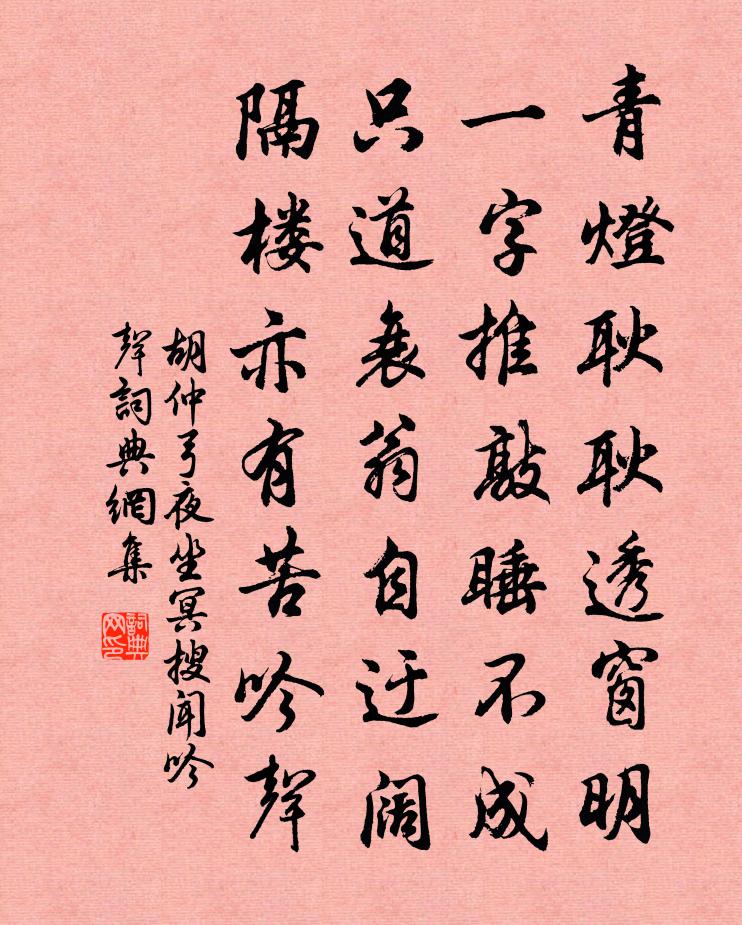 青燈耿耿透窗明
一字推敲睡不成
只道衰翁自迂阔
隔楼亦有苦吟聲
胡仲弓夜坐冥搜聞吟
聲詞典網集
詞典
网印